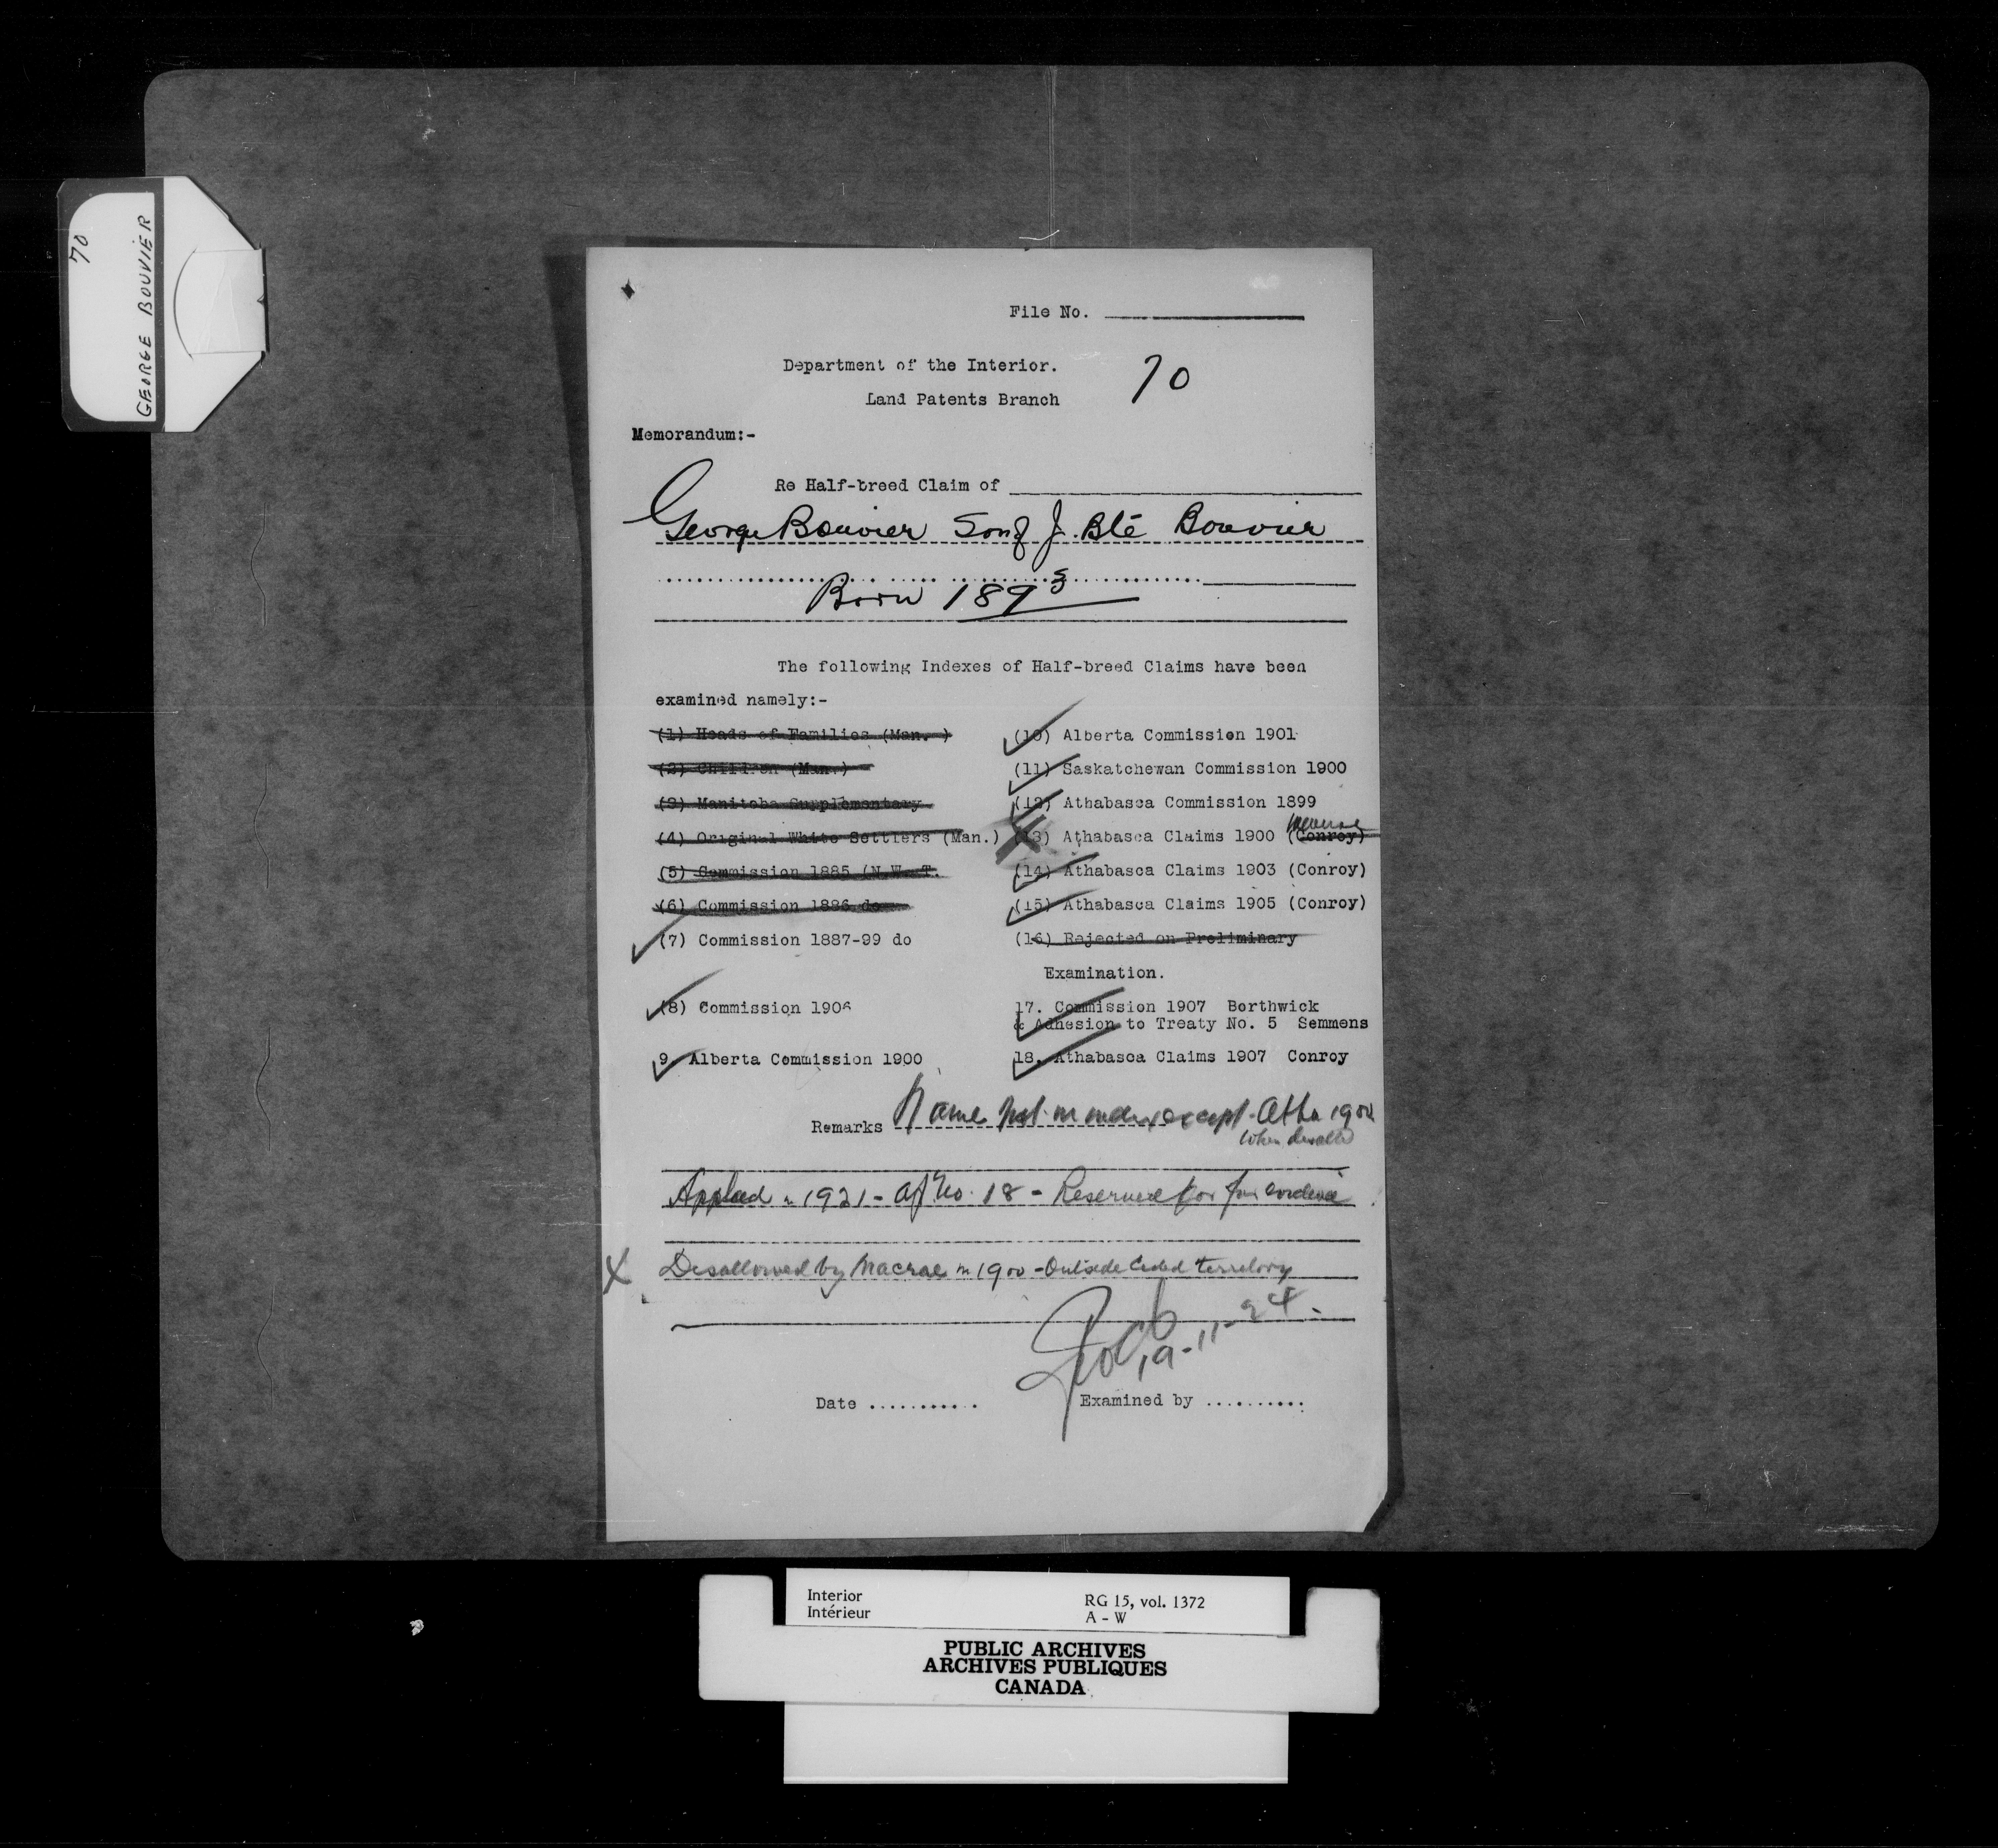 70
GEORGE BOUVIER
File No.
Department of the Interior.
70
Land Patents Branch
Memorandum:-
Re Half-breed Claim of
George Bouvier Son of J. Bte Bouvier
Born 1893
The following Indexes of Half-breed Claims have been
examined namely:-
(1) Heads of Families (Man. )
(2) Children (Man.)
(3) Manitoba Supplementary
(4) Original White Settlers (Man.)
(5) Commission 1885 (N.W. T.
(6) Commission 1886 do
(7) Commission 1887-99 do
(8) Commission 1906
9. Alberta Commission 1900
(10) Alberta Commission 1901
(11) Saskatchewan Commission 1900
(12) Athabasca Commission 1899
Macrae
(13) Athabasca Claims 1900 (Conroy)
(14) Athabasca Claims 1903 (Conroy)
(15) Athabasca Claims 1905 (Conroy)
(16) Rejected on Preliminary
Examination.
17. Commission 1907 Borthwick
& Adhesion to Treaty No. 5 Semmens
18. Athabasca Claims 1907 Conroy
Remarks Name not in index except Atha 1900
when
Applied in 1921 - Af No. 18 - Reserved for fur evidence
X Disallowed by Macrae in 1900 - Outside Ceded territory
19-11-24.
Date ...........
Examined by ..........
Interior
Intérieur
RG 15, vol. 1372
A - W
PUBLIC ARCHIVES
ARCHIVES PUBLIQUES
CANADA